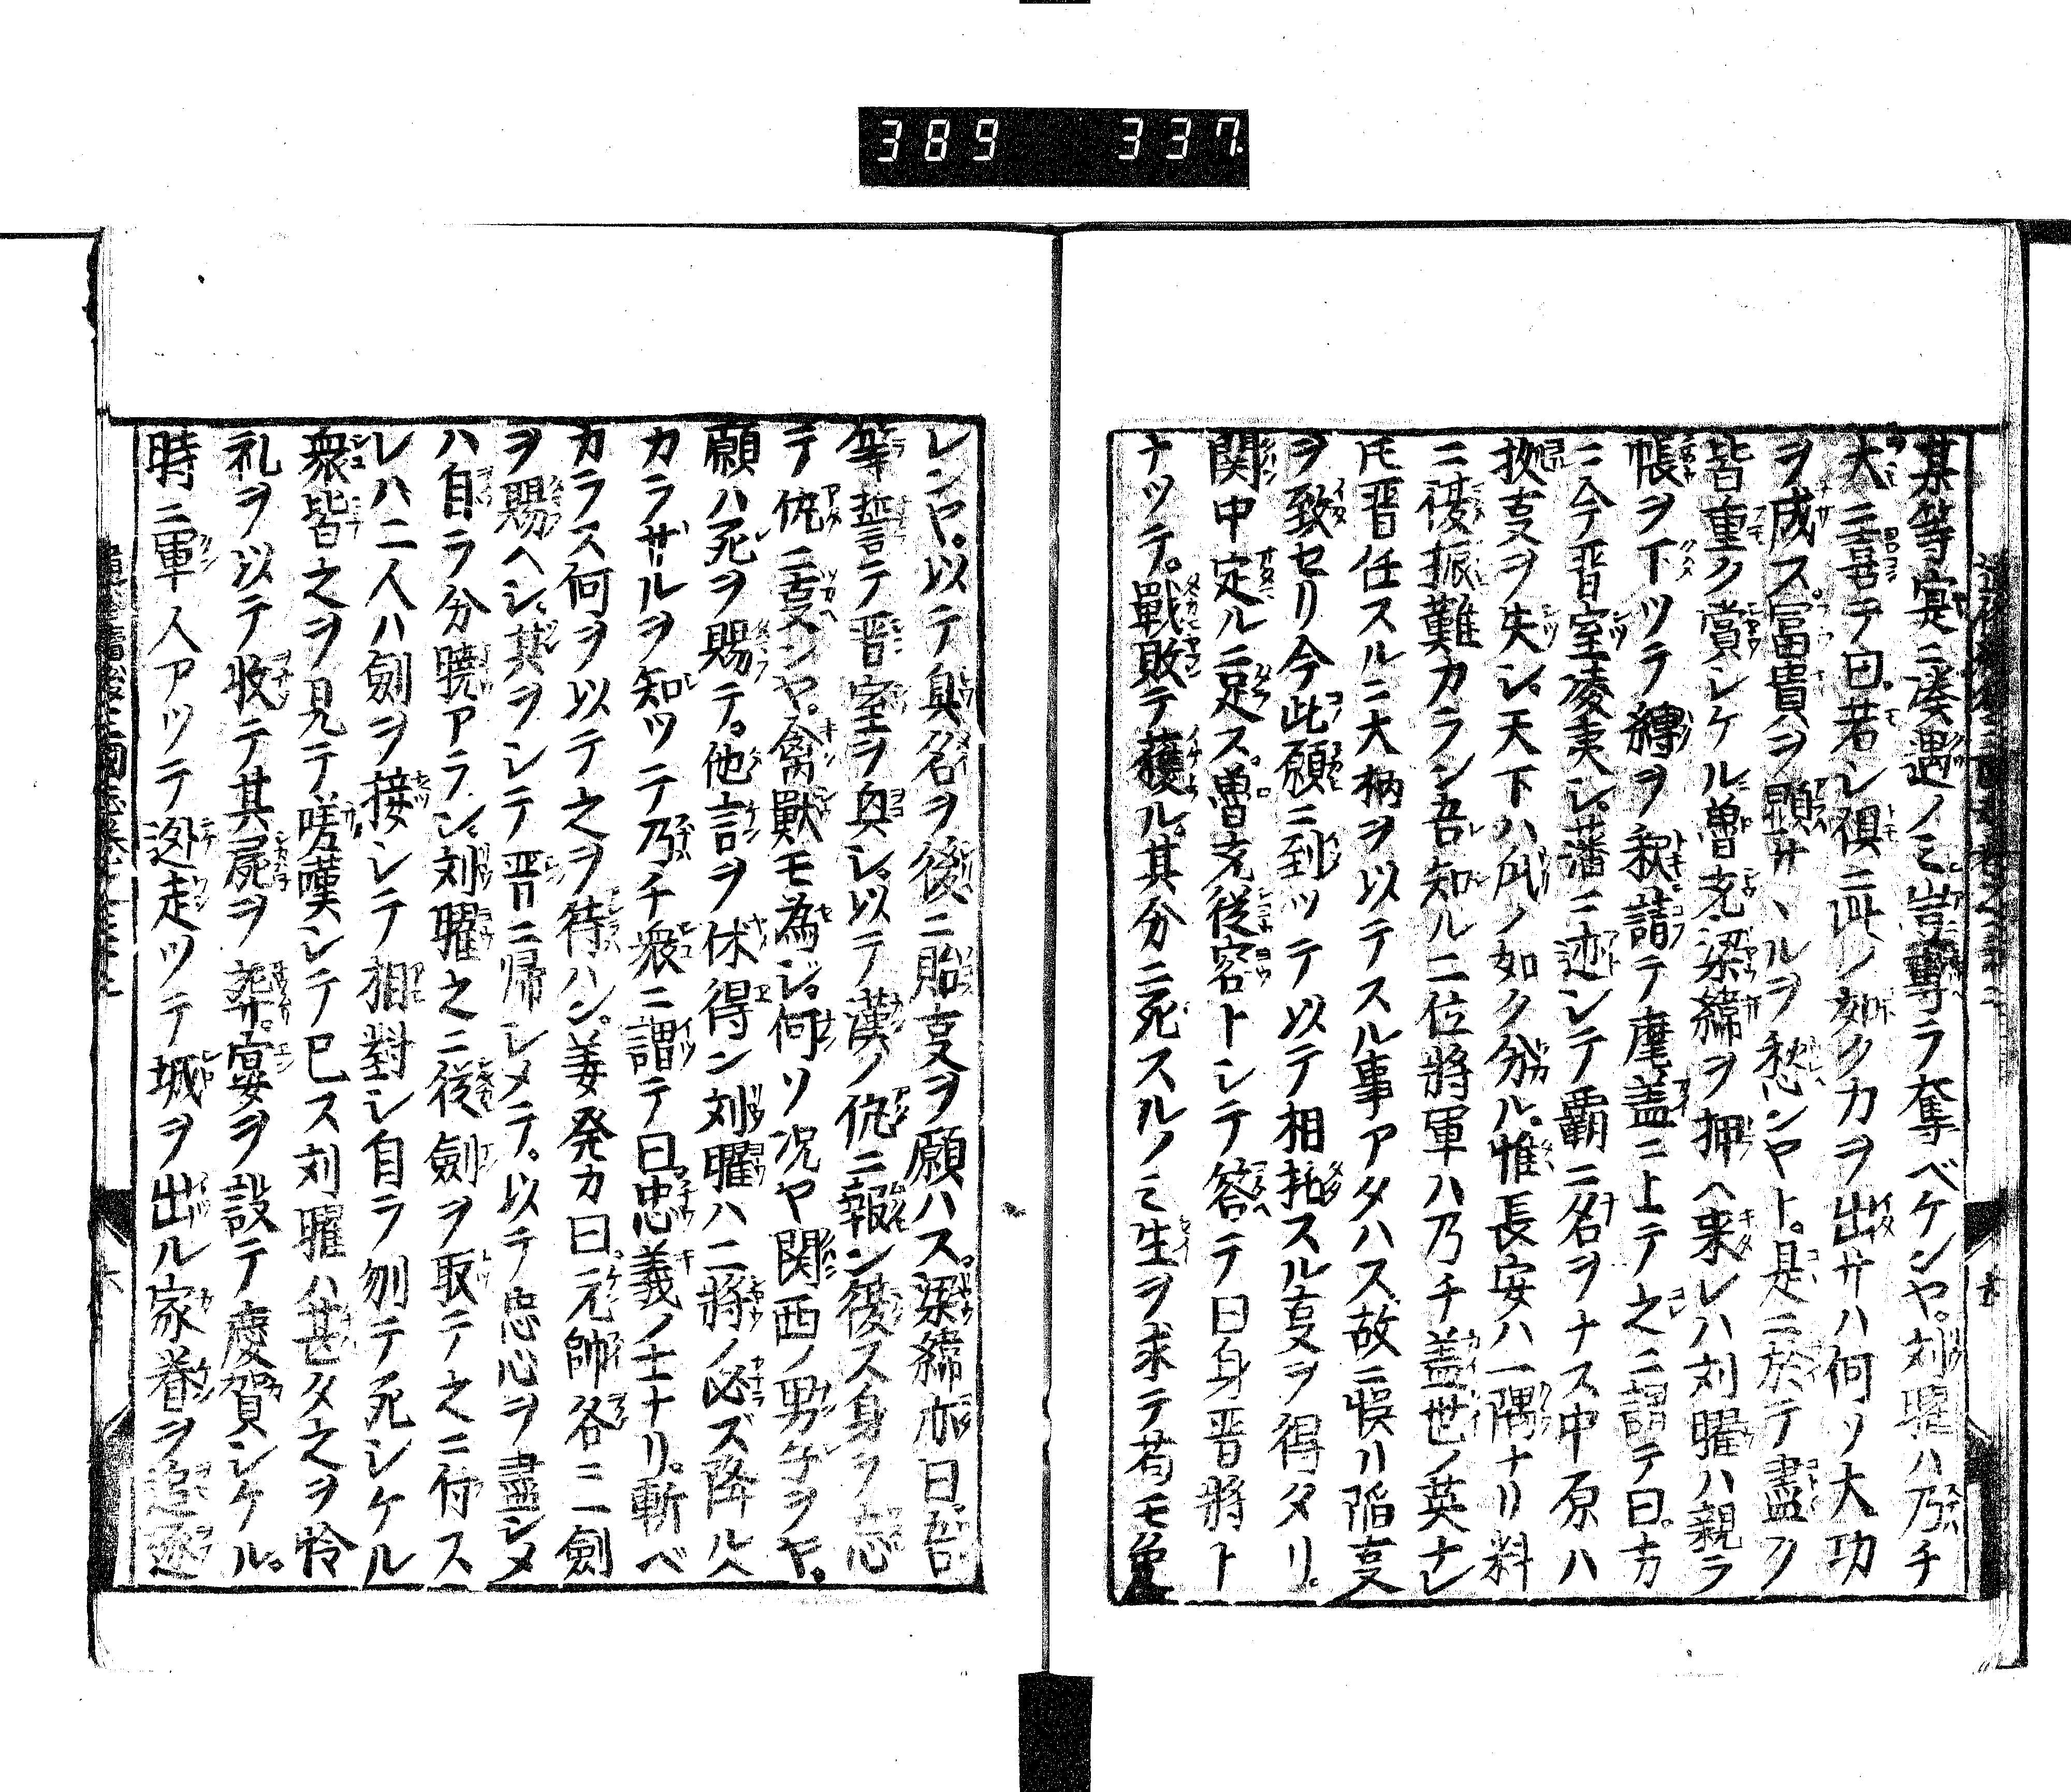 389 337
其等寔ニ湊遇ノミ豈專ラ奪ベケンヤ。刘曜ハ乃チ
大ニ喜テ曰。若シ俱ニ此ノ如ク力ヲ出サハ何ソ大功
ヲ成ス。富貴ヲ顕サヽルヲ愁ンヤト。是ニ於テ盡ク
皆重ク賞シケル曽克梁緯ヲ押ヘ来レハ刘曜ハ親ラ
帳ヲ下ツテ縛ヲ釈請テ麾盖ニ上テ之ニ謂テ曰。方
ニ今晋室凌夷シ、藩ニ迹シテ覇ニ名ヲナス中原ハ
故支ヲ失シ。天下ハ瓜ノ如ク分ル。惟長安ハ一隅ナリ料
ニ復振難カラン吾知ル二位将軍ハ乃チ盖世ノ英ナレ
𪜈晋任スルニ大柄ヲ以テスル事アタハス故ニ悞リ陥支
ヲ致セリ今此願ニ到ツテ以テ相托スル支ヲ得タリ。
関中定ルニ足ス。曽克従容トシテ答テ曰身晋将ト
ナツテ。戰敗テ獲ル。其分ニ死スルノミ生ヲ求テ苟モ免
レンヤ。以テ臭名ヲ後ニ貽支ヲ願ハス。梁緯亦曰。吾
等誓テ晋室ヲ與シ。以テ漢ノ仇ニ報ン後ス身ヲ忘
テ仇ニ支ンヤ。禽獸モ為ジ。何ソ况ヤ関西ノ男子ヲヤ。
願ハ死ヲ賜テ。他言ヲ休得ン刘曜ハ二将ノ必ズ降ルベ
カラザルヲ知ツテ乃チ衆ニ謂テ曰忠義ノ士ナリ。斬ベ
カラス何ヲ以テ之ヲ待ハン。姜発カ曰。元帥各ニ一劍
ヲ賜ヘシ。其ヲシテ晋ニ帰レメテ。以テ忠心ヲ盡シメ
ハ自ラ分曉アラン。刘曜之ニ從劍ヲ取テ之ニ付ス
レハ二人ハ劍ヲ接シテ相對シ自ラ刎テ死シケル
衆皆之ヲ見テ嗟嘆シテ已ス刘曜ハ甚タ之ヲ怜
礼ヲ以テ收テ其屍ヲ葬。宴ヲ設テ慶賀シケル。
時ニ軍人アツテ迯走ツテ城ヲ出ル家眷ヲ追逐